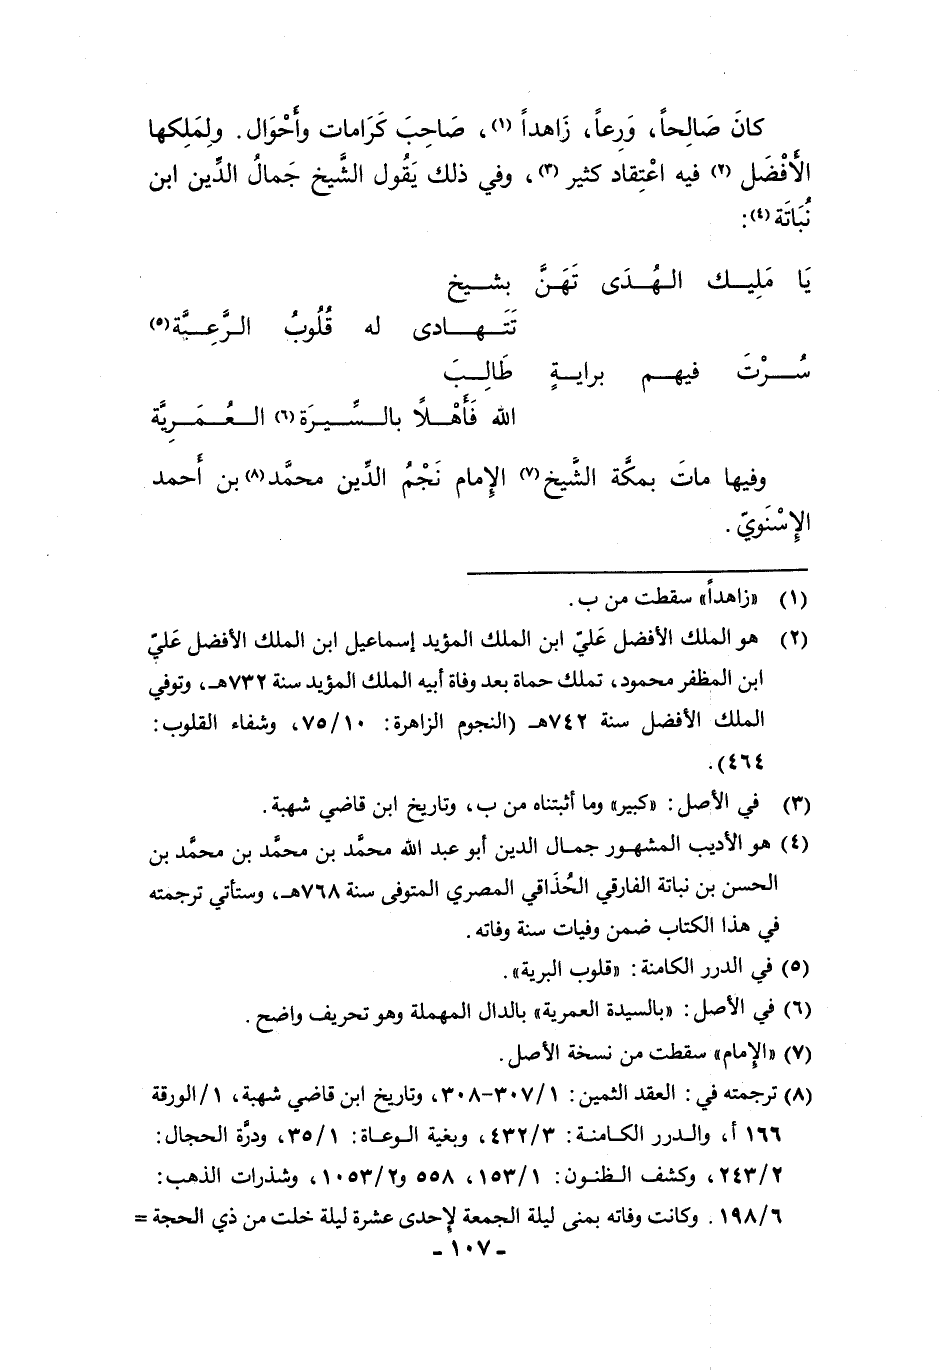 كانَ صَالِحاً، وَرِعاً، زَاهداً (١)، صَاحِبَ كَرَامات وأَحْوَال. ولِمَلِكِها
الأَفْضَل (٢) فيه اعْتِقاد كثير (٣)، وفي ذلك يَقُول الشَّيخ جَمالُ الدِّين ابن
نُبَاتَة (٤):
يَا مَلِيك الهُدَى تَهَنَّ بشيخ
تَتَهادى له قُلُوبُ الرَّعِيَّة (٥)
سُرْتَ فيهم برايةٍ طَالِبَ
الله فَأَهْلاً بالسِّيرَة (٦) العُمَرِيَّة
وفيها ماتَ بمكَّة الشَّيخ (٧) الإِمام نَجْمُ الدِّين محمَّد (٨) بن أَحمد
الإِسْنَويّ.
(١) «زاهداً» سقطت من ب.
(٢) هو الملك الأفضل عَليّ ابن الملك المؤيد إسماعيل ابن الملك الأفضل عَليّ
ابن المظفر محمود، تملك حماة بعد وفاة أبيه الملك المؤيد سنة ٧٣٢هـ، وتوفي
الملك الأفضل سنة ٧٤٢هـ (النجوم الزاهرة: ٧٥/١٠، وشفاء القلوب:
٤٦٤).
(٣) في الأصل: «كبير» وما أثبتناه من ب، وتاريخ ابن قاضي شهبة.
(٤) هو الأديب المشهور جمال الدين أبو عبد الله محمَّد بن محمَّد بن محمَّد بن
الحسن بن نباتة الفارقي الحُذَاقي المصري المتوفى سنة ٧٦٨هـ، وستأتي ترجمته
في هذا الكتاب ضمن وفيات سنة وفاته.
(٥) في الدرر الكامنة: «قلوب البرية».
(٦) في الأصل: «بالسيدة العمرية» بالدال المهملة وهو تحريف واضح.
(٧) «الإِمام» سقطت من نسخة الأصل.
(٨) ترجمته في: العقد الثمين: ٣٠٧/١-٣٠٨، وتاريخ ابن قاضي شهبة، ١/الورقة
١٦٦ أ، والدرر الكامنة: ٤٣٢/٣، وبغية الوعاة: ٣٥/١، ودرَّة الحجال:
٢٤٣/٢، وكشف الظنون: ١٥٣/١، ٥٥٨ و١٠٥٣/٢، وشذرات الذهب:
١٩٨/٦. وكانت وفاته بمنى ليلة الجمعة لإحدى عشرة ليلة خلت من ذي الحجة =
- ١٠٧ -